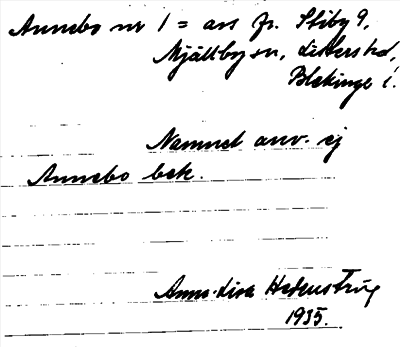 Annebo nr 1 = avs fr. Stiby 9,
Mjällby sn, Listers hd,
Blekinge l.
Namnet anv. ej
Annebo bek.
Anna-Lisa Hedenstrüg
1935.